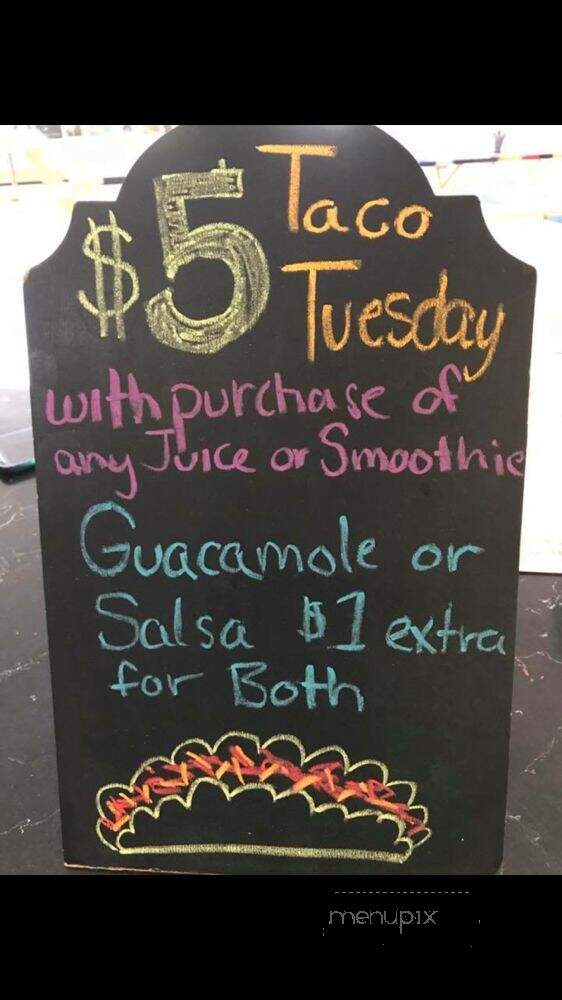 $5 Taco
Tuesday
with purchase of
any Juice or Smoothie
Guacamole or
Salsa $1 extra
for Both
menupix